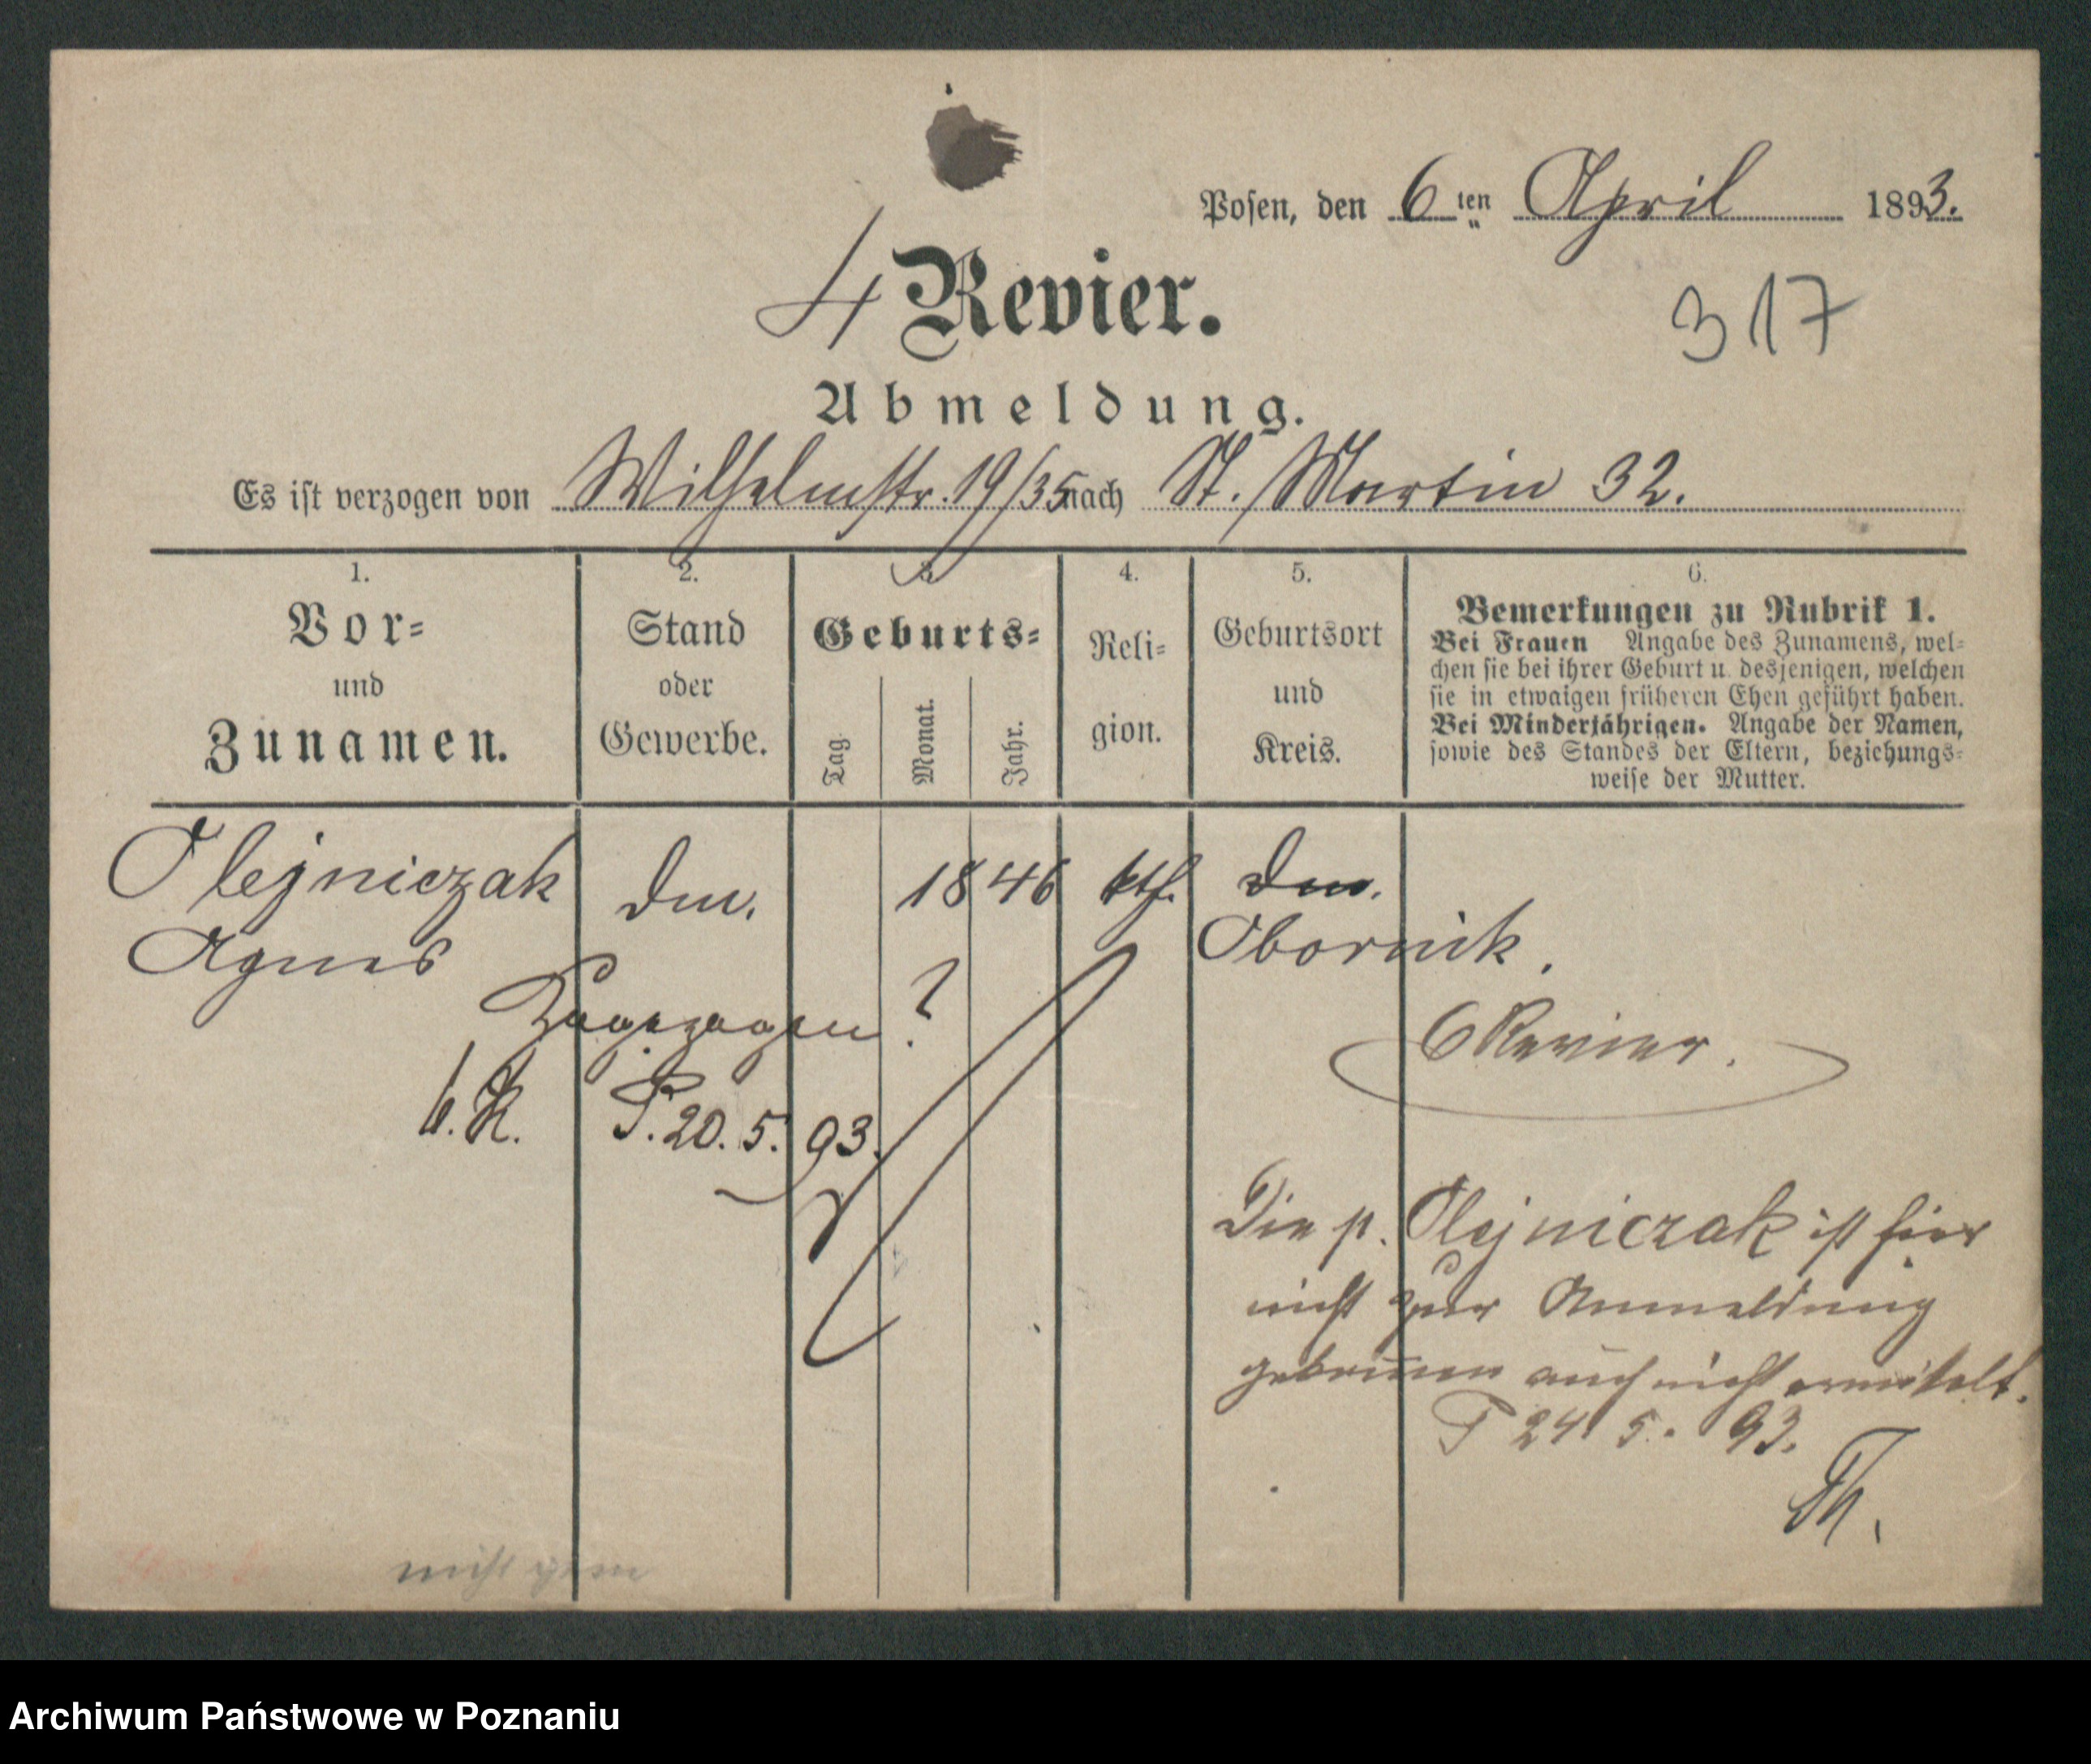 Posen, den 6 ten April 1893.
4 Revier.
317
Abmeldung.
Es ist verzogen von Wilhelmstr. 19/35 nach St. Martin 32.
1. 2. 3. 4. 5. 6.
Vor- und Zunamen.
Stand oder Gewerbe.
Geburts-
Tag. Monat. Jahr.
Reli-
gion.
Geburtsort
und
Kreis.
Bemerkungen zu Rubrik 1.
Bei Frauen Angabe des Zunamens, wel-
chen sie bei ihrer Geburt u. desjenigen, welchen
sie in etwaigen früheren Ehen geführt haben.
Bei Minderjährigen. Angabe der Namen,
sowie des Standes der Eltern, beziehungs-
weise der Mutter.
Olejniczak 1846 kth.
Agnes Obornik.
Zugezogen?
6 Revier.
6. R. P. 20. 5. 93.
Die p. Olejniczak ist hier
nicht zur Anmeldung
gekommen auch nicht ermittelt.
P 24 5. 93.
Th.
nicht
Archiwum Państwowe w Poznaniu